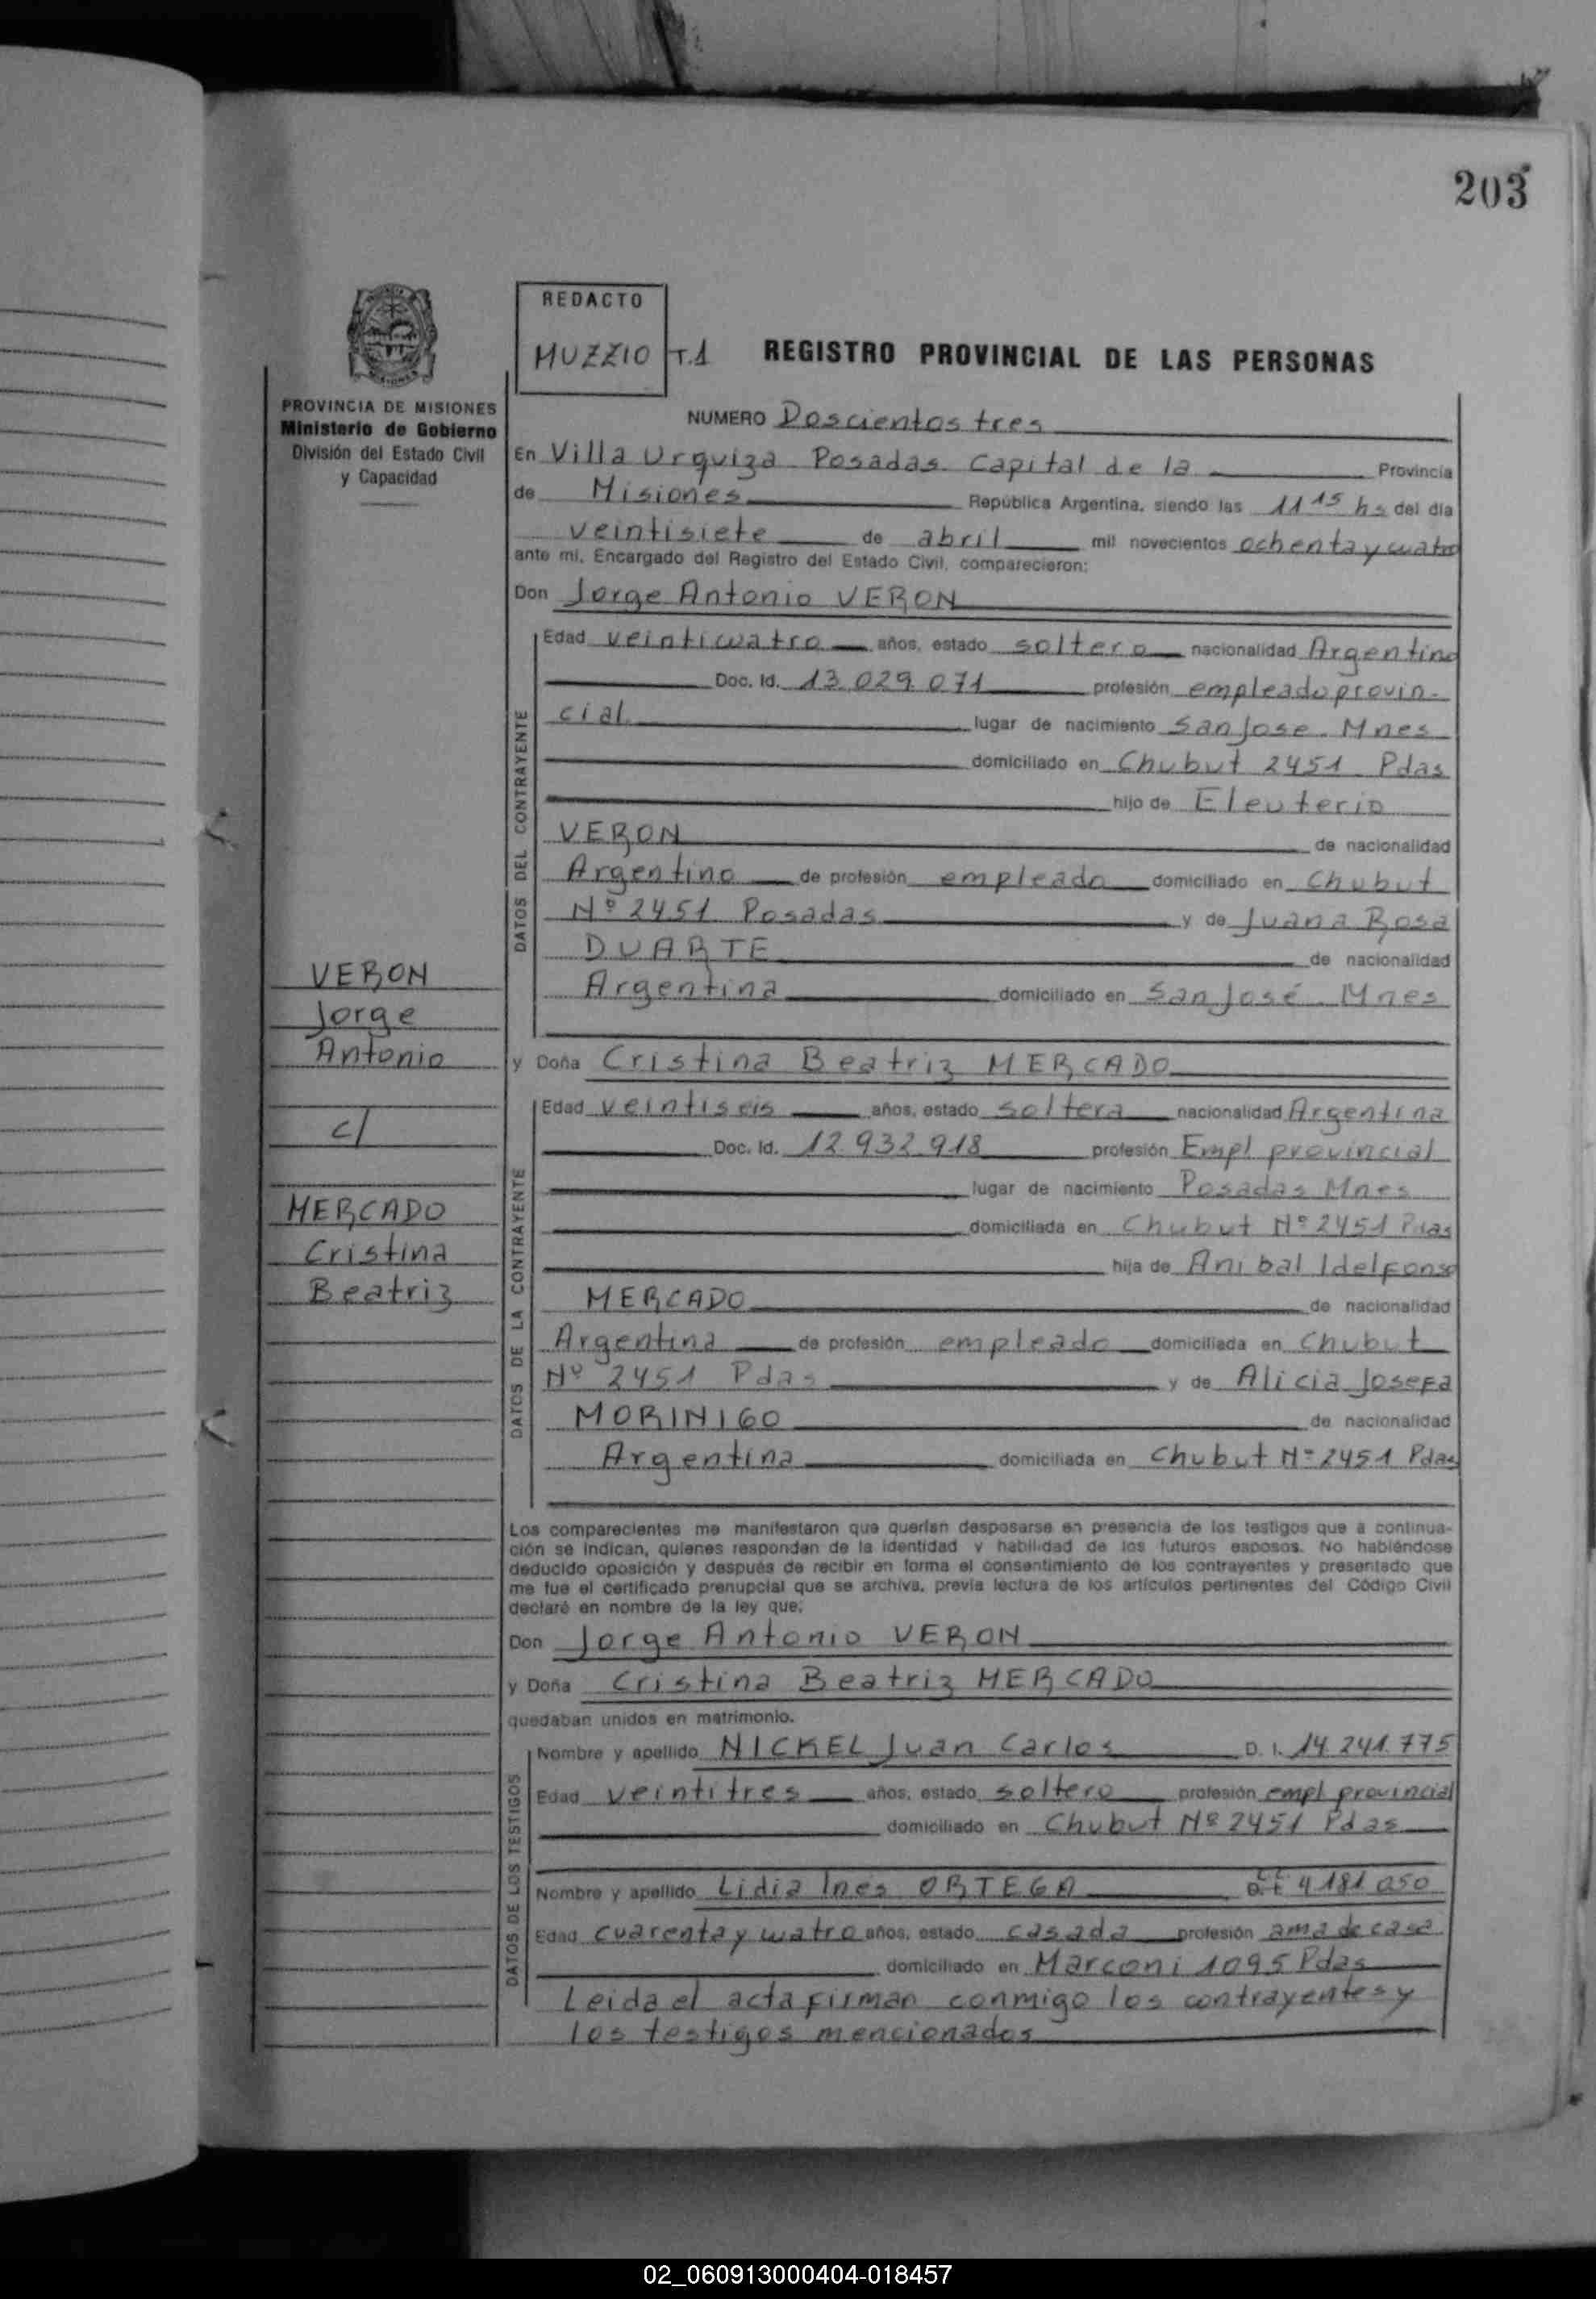 203
REDACTO
MUZZIO T.1
REGISTRO PROVINCIAL DE LAS PERSONAS
PROVINCIA DE MISIONES
Ministerio de Gobierno
División del Estado Civil
y Capacidad
NUMERO Doscientos tres
En Villa Urquiza Posadas Capital de la Provincia
de Misiones República Argentina, siendo las 11 15 hs del día
veintisiete de abril mil novecientos ochenta y cuatro
ante mi, Encargado del Registro del Estado Civil, comparecieron:
Don Jorge Antonio VERON
DATOS DEL CONTRAYENTE
Edad veinticuatro años, estado soltero nacionalidad Argentino
Doc. Id. 13.029.071 profesión empleado provin-
cial lugar de nacimiento San Jose Mnes
domiciliado en Chubut 2451 Pdas
hijo de Eleuterio
VERON de nacionalidad
Argentino de profesión empleado domiciliado en Chubut
Nº 2451 Posadas y de Juana Rosa
DUARTE de nacionalidad
Argentina domiciliado en San José Mnes
VERON
Jorge
Antonio
c/
MERCADO
Cristina
Beatriz
y Doña Cristina Beatriz MERCADO
DATOS DE LA CONTRAYENTE
Edad veintiseis años, estado soltera nacionalidad Argentina
Doc. Id. 12.932.918 profesión Empl provincial
lugar de nacimiento Posadas Mnes
domiciliada en Chubut Nº 2451 Pdas
hija de Anibal Idelfonso
MERCADO de nacionalidad
Argentina de profesión empleado domiciliada en Chubut
Nº 2451 Pdas y de Alicia Josefa
MORINIGO de nacionalidad
Argentina domiciliada en Chubut Nº 2451 Pdas
Los comparecientes me manifestaron que querían desposarse en presencia de los testigos que a continua-
ción se indican, quienes responden de la identidad y habilidad de los futuros esposos. No habiéndose
deducido oposición y después de recibir en forma el consentimiento de los contrayentes y presentado que
me fue el certificado prenupcial que se archiva, previa lectura de los artículos pertinentes del Código Civil
declaré en nombre de la ley que:
Don Jorge Antonio VERON
y Doña Cristina Beatriz MERCADO
quedaban unidos en matrimonio.
DATOS DE LOS TESTIGOS
Nombre y apellido NICKEL Juan Carlos D. I. 14.241.775
Edad veintitres años, estado soltero profesión empl provincial
domiciliado en Chubut Nº 2451 Pdas
Nombre y apellido Lidia Inés ORTEGA 4181 050
Edad cuarenta y cuatro años, estado casada profesión ama de casa
domiciliado en Marconi 1095 Pdas
Leida el acta firman conmigo los contrayentes y
los testigos mencionados
02_060913000404-018457